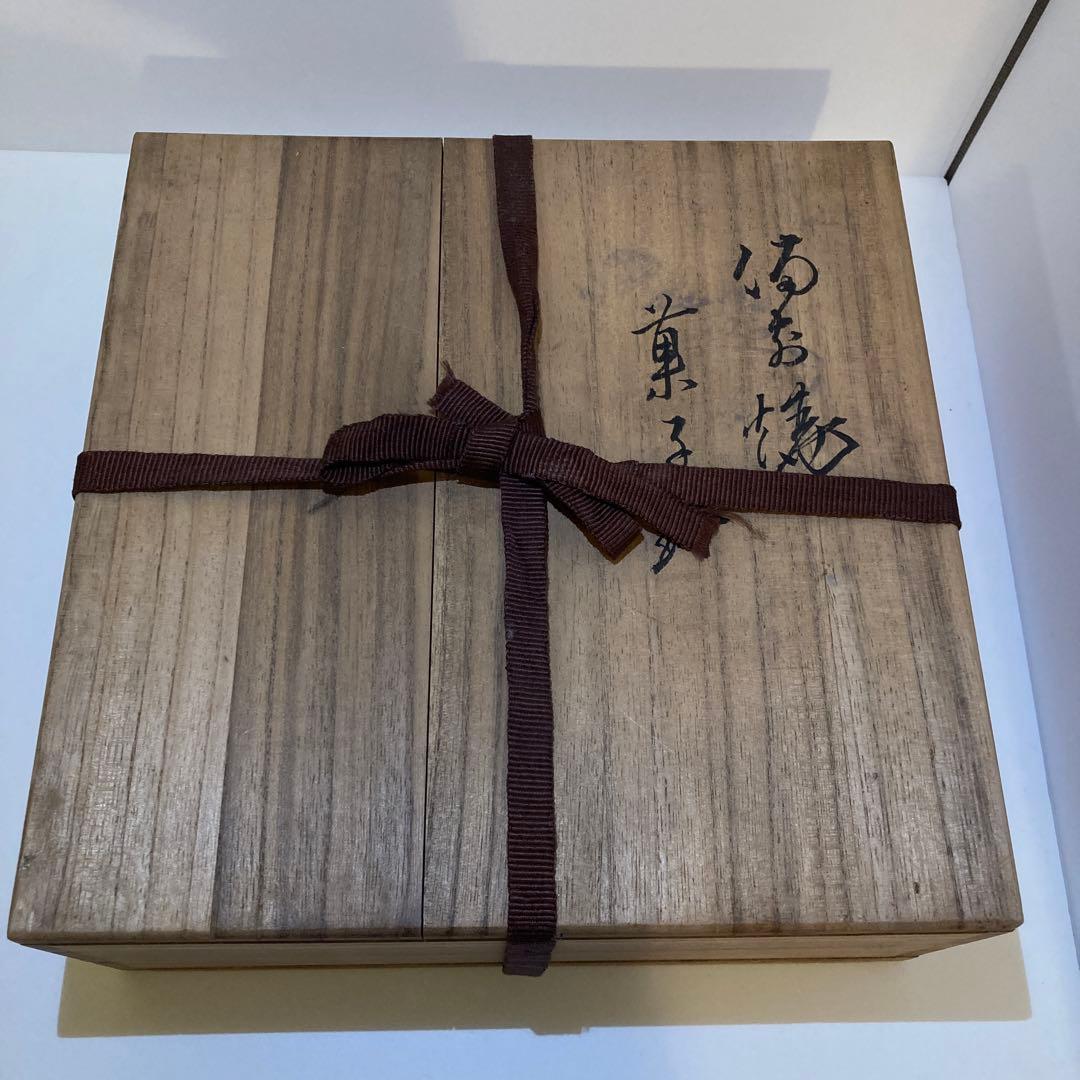 備前焼
菓子